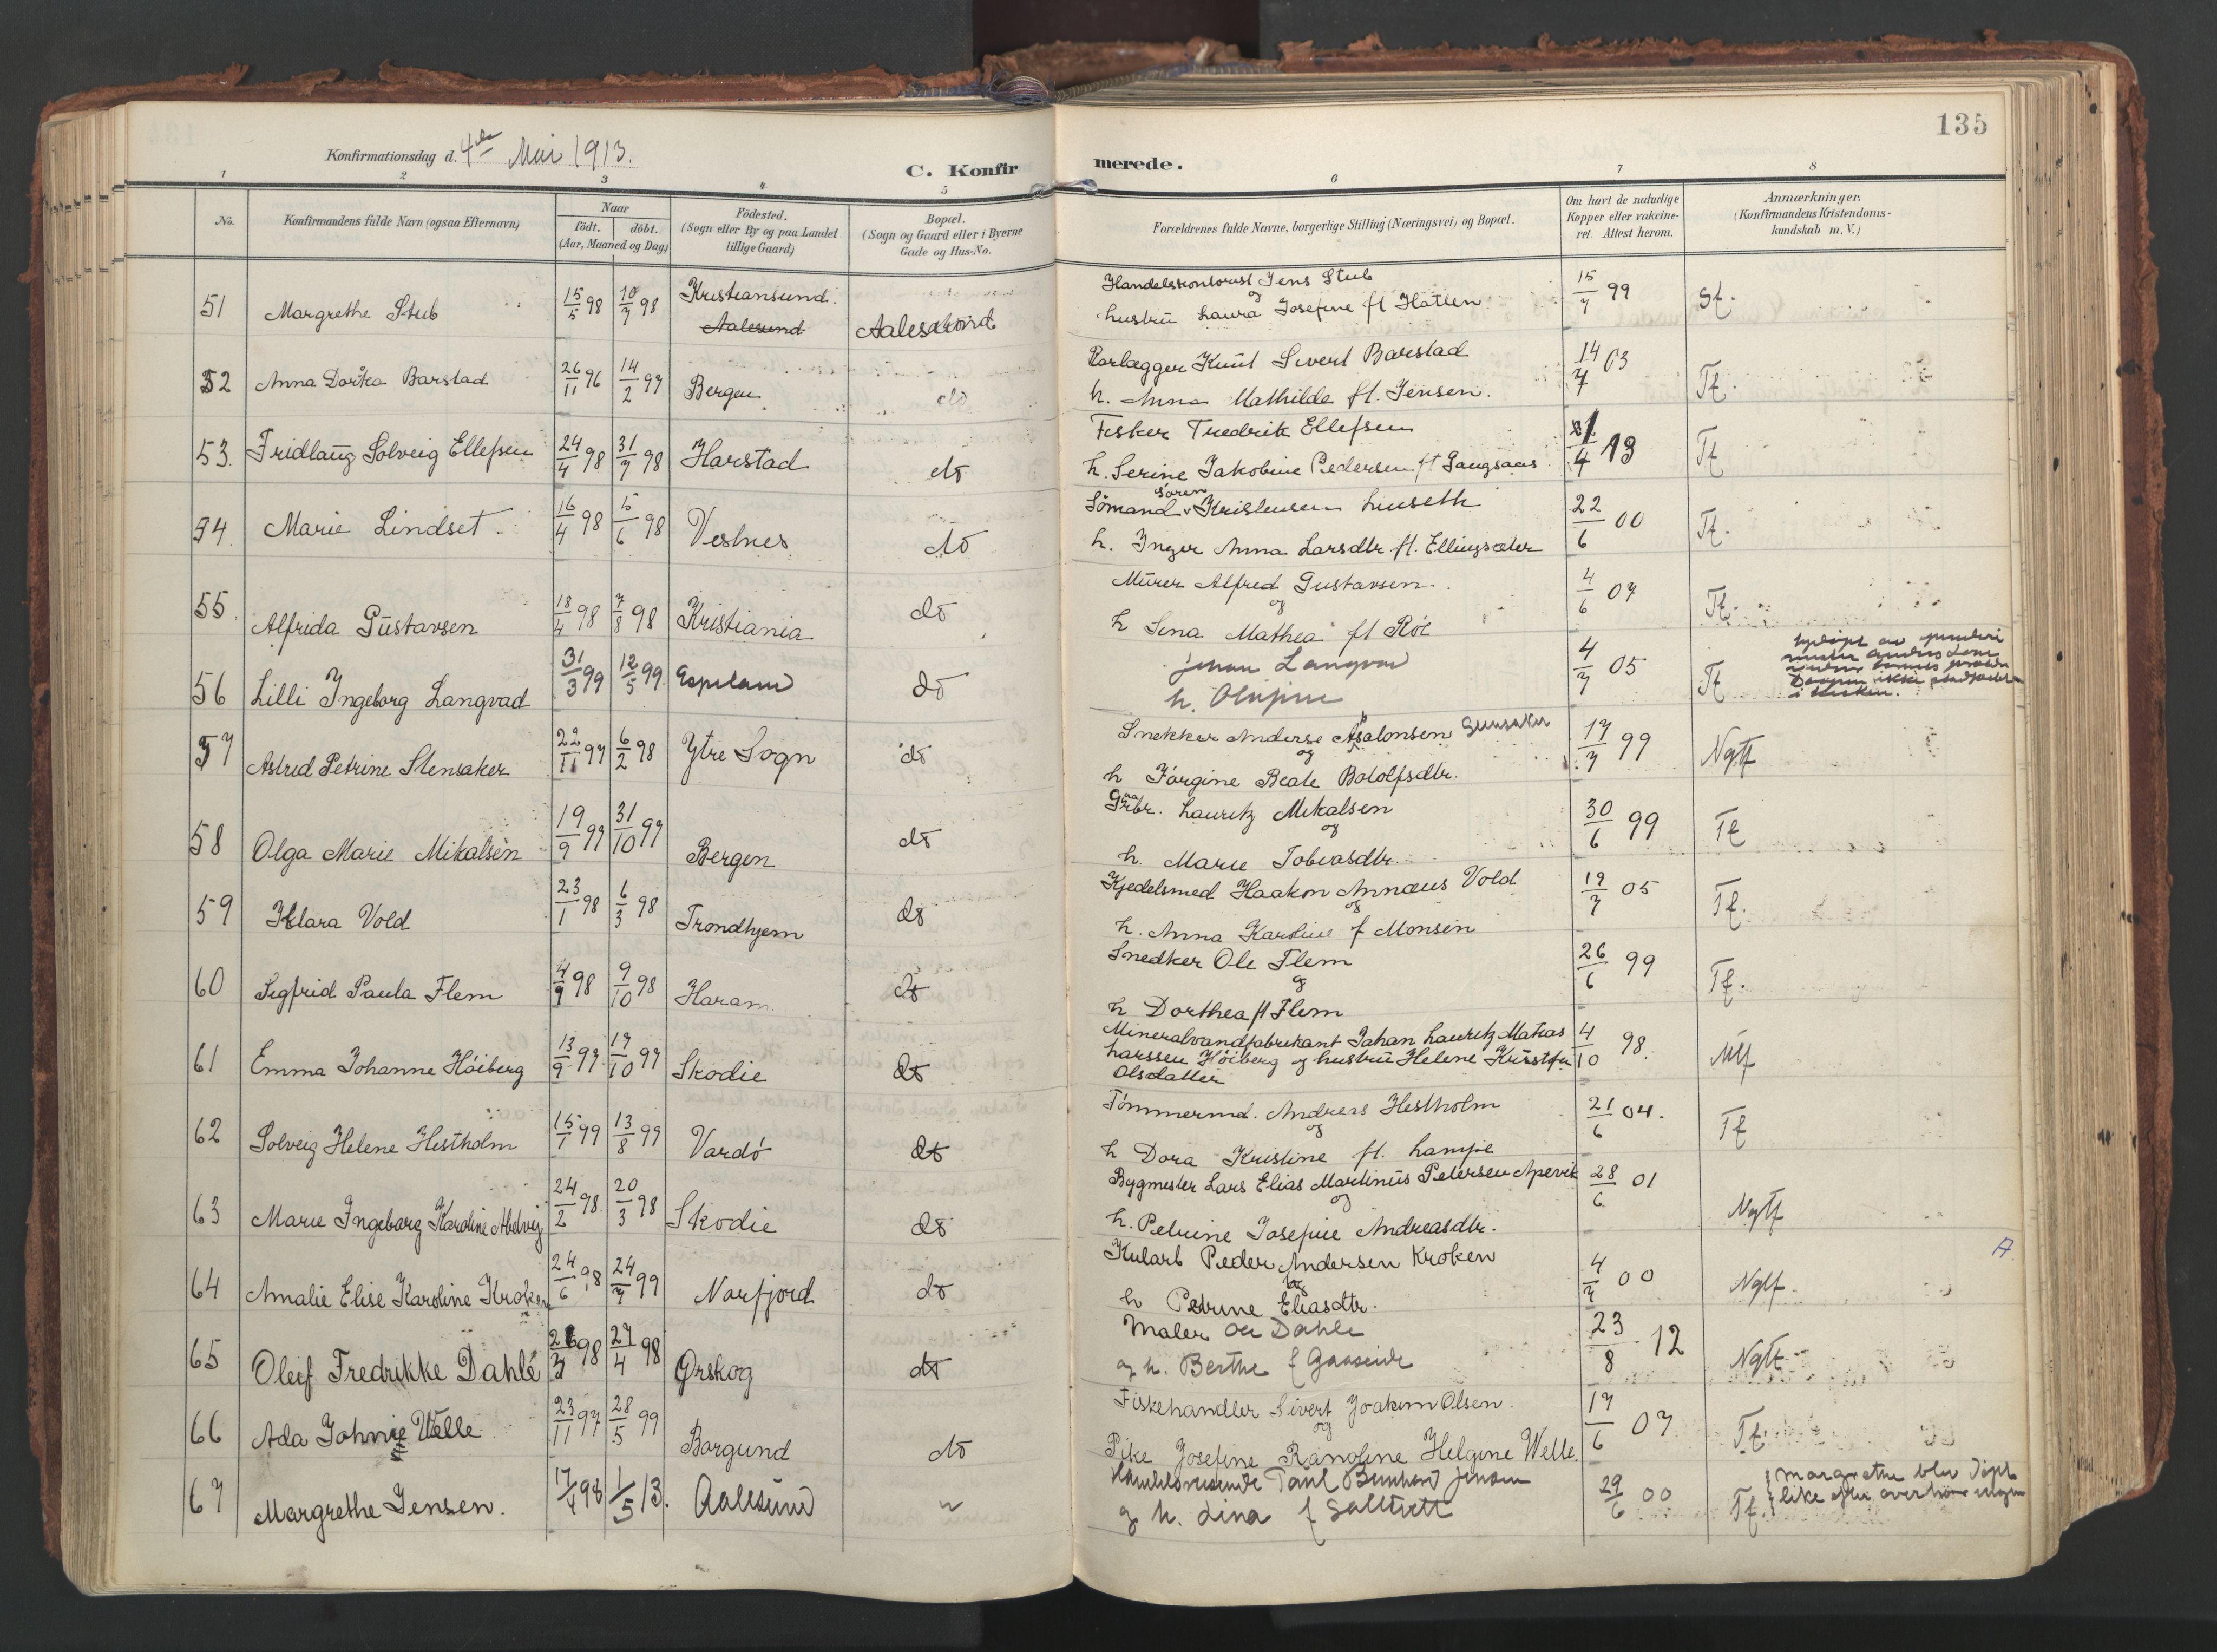 135
Konfirmationsdag d. 4de Mai 1913.
C. Konfirmerede.
1 2 3 4 5 6 7 8
No. Konfirmandens fulde Navn (ogsaa Efternavn) Naar født. døbt. (Aar, Maaned og Dag) Fødested. (Sogn eller By og paa Landet tillige Gaard) Bopæl. (Sogn og Gaard eller i Byerne Gade og Hus-No. Forældrenes fulde Navne, borgerlige Stilling (Næringsvei) og Bopæl. Om havt de naturlige Kopper eller vakcineret. Attest herom. Anmærkninger. (Konfirmandens Kristendomskundskab m. V.)
51 Margrethe Stub 15/5 98 10/7 98 Kristiansund. Aalesund Aalesund Handelskontorist Jens Stub 15/7 99
og
hustru Laura Josefine ft Hatlen
52 Anna Dorka Barstad 26/11 96 14/2 97 Bergen do Rørlægger Knut Sivert Barstad 14/7 03 Tf.
h. Anna Mathilde ft. Jensen.
53. Fridlaug Solveig Ellefsen 24/4 98 31/7 98 Harstad do Fisker Fredrik Ellefsen 4 13 Tf
h. Serine Jakobine Pedersen ft Langsaas
54. Marie Lindset 16/4 98 5/6 98 Vestnes do Sømand Søren Kristensen Linseth 22/6 00 Tf.
h. Inger Anna Larsdtr ft. Ellingsæter
55. Alfrida Gustavsen 18/4 98 7/8 98 Kristiania do Murer Alfred Gustavsen. 4/6 07 Tf.
og
h Lina Mathea ft Røe
56 Lilli Ingeborg Langvad 31/3 99 12/5 99. do Johan Langvad 4/7 05 Tf
h. Olufine
57 Astrid Petrine Stensaker 22/11 97 6/2 98 Ytre Sogn do Snekker Anderse Asalonsen Stensaker 17/7 99 Ngtf
og
h Jørgine Beate Botolfsdtr.
58 Olga Marie Mikalsen 19/9 97 31/10 97 Bergen do Lauritz Mikalsen 30/6 99 Tf
og
h. Marie Tobiasdtr.
59 Klara Vold 23/1 98 6/3 98 Trondhjem do Kjedelsmed Haakon Annæus Vold 19/7 05 Tf.
og
h. Anna Karoline f Monsen
60 Sigfrid Paula Flem 4/9 98 9/10 98 Haram do Snedker Ole Flem 26/6 99 Tf.
og
h Dorthea ft Flem
61 Emma Johanne Höiberg 13/9 97 17/10 97 Skodje do Mineralvandfabrikant Johan Lauritz Matias 4/10 98. Mtf
Larssen Höiberg og hustru Helene Kristine
Olsdatter
62 Solveig Helene Hestholm 15/1 99 13/8 99 Vardö do Tömmermd. Andreas Hestholm 21/6 04. Tf
og
h Dora Kristine ft. Lampe
63 Marie Ingeborg Karoline 24/2 98. 20/3 98 Skodie do Bygmester Lars Elias Martinus Petersen Apevik 28/6 01 Ngtf
og
h. Petrine Josefine Andreasdtr.
64 Amalie Elise Karoline Kroken 24/6 98 24/7 99 Norfjord do Kularb Peder Andersen Kroken 4/7 00 Ngtf.
og
h Petrine Eliasdtr.
65 Oluf Fredrikke Dahle 98 27/4 98 Ørskog do Maler Ole Dahle 23/8 12 Ngtf
og h. Berthe f Gaaseide
66 Ada Johnie Welle 23/11 97 28/5 99 Borgund do Fiskehandler Sivert Joakim Olsen. 17/6 07 Tf.
og
Pike Josefine Ranoline Helgine Welle.
67 Margrethe Jensen. 17/4 98 1/5 13. Aalesund Handelsreisende Paul Bernhard Jensen 29/6 00 Tf. Margrethe blev døpt
og h. Lina f Saltvett like efter overhøringen